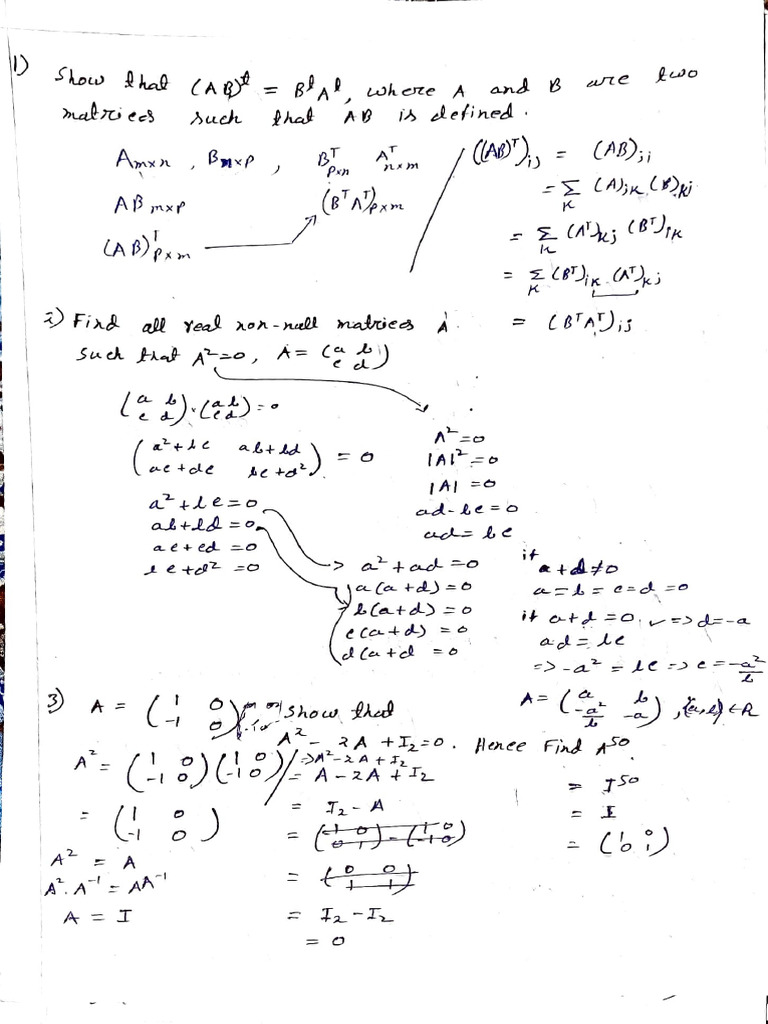 1) Show that (AB)^t = B^t A^t, where A and B are two
matrices such that AB is defined.
A_{m×n}, B_{n×p}, B^T_{p×n} A^T_{n×m}
AB_{m×p} (B^T A^T)_{p×m}
(AB)^T_{p×m} →
((AB)^T)_{ij} = (AB)_{ji}
= Σ_K (A)_{jK} (B)_{Ki}
= Σ_K (A^T)_{Kj} (B^T)_{iK}
= Σ_K (B^T)_{iK} (A^T)_{Kj}
= (B^T A^T)_{ij}
2) Find all real non-null matrices A
such that A²=0, A = (a b; c d)
(a b; c d)·(a b; c d) = 0
(a²+bc ab+bd; ac+dc bc+d²) = 0
a²+bc=0
ab+bd=0
ac+cd=0
bc+d²=0
A²=0
|A|²=0
|A|=0
ad-bc=0
ad=bc
→ a²+ad=0
a(a+d)=0
b(a+d)=0
c(a+d)=0
d(a+d=0
if a+d≠0
a=b=c=d=0
if a+d=0 ✓ => d=-a
ad=bc
=> -a² = bc => c = -a²/b
A = (a b; -a²/b -a), {a,b} ∈ R
3) A = (1 0; -1 0) show that
A² - 2A + I₂=0. Hence Find A⁵⁰
A² = (1 0; -1 0)(1 0; -1 0)
= (1 0; -1 0)
A² = A
A².A⁻¹ = AA⁻¹
A = I
=> A² - 2A + I₂
= A - 2A + I₂
= I₂ - A
= (1 0; 0 1) - (1 0; -1 0)
= (0 0; 1 1)
= I₂ - I₂
= 0
= I⁵⁰
= I
= (1 0; 0 1)